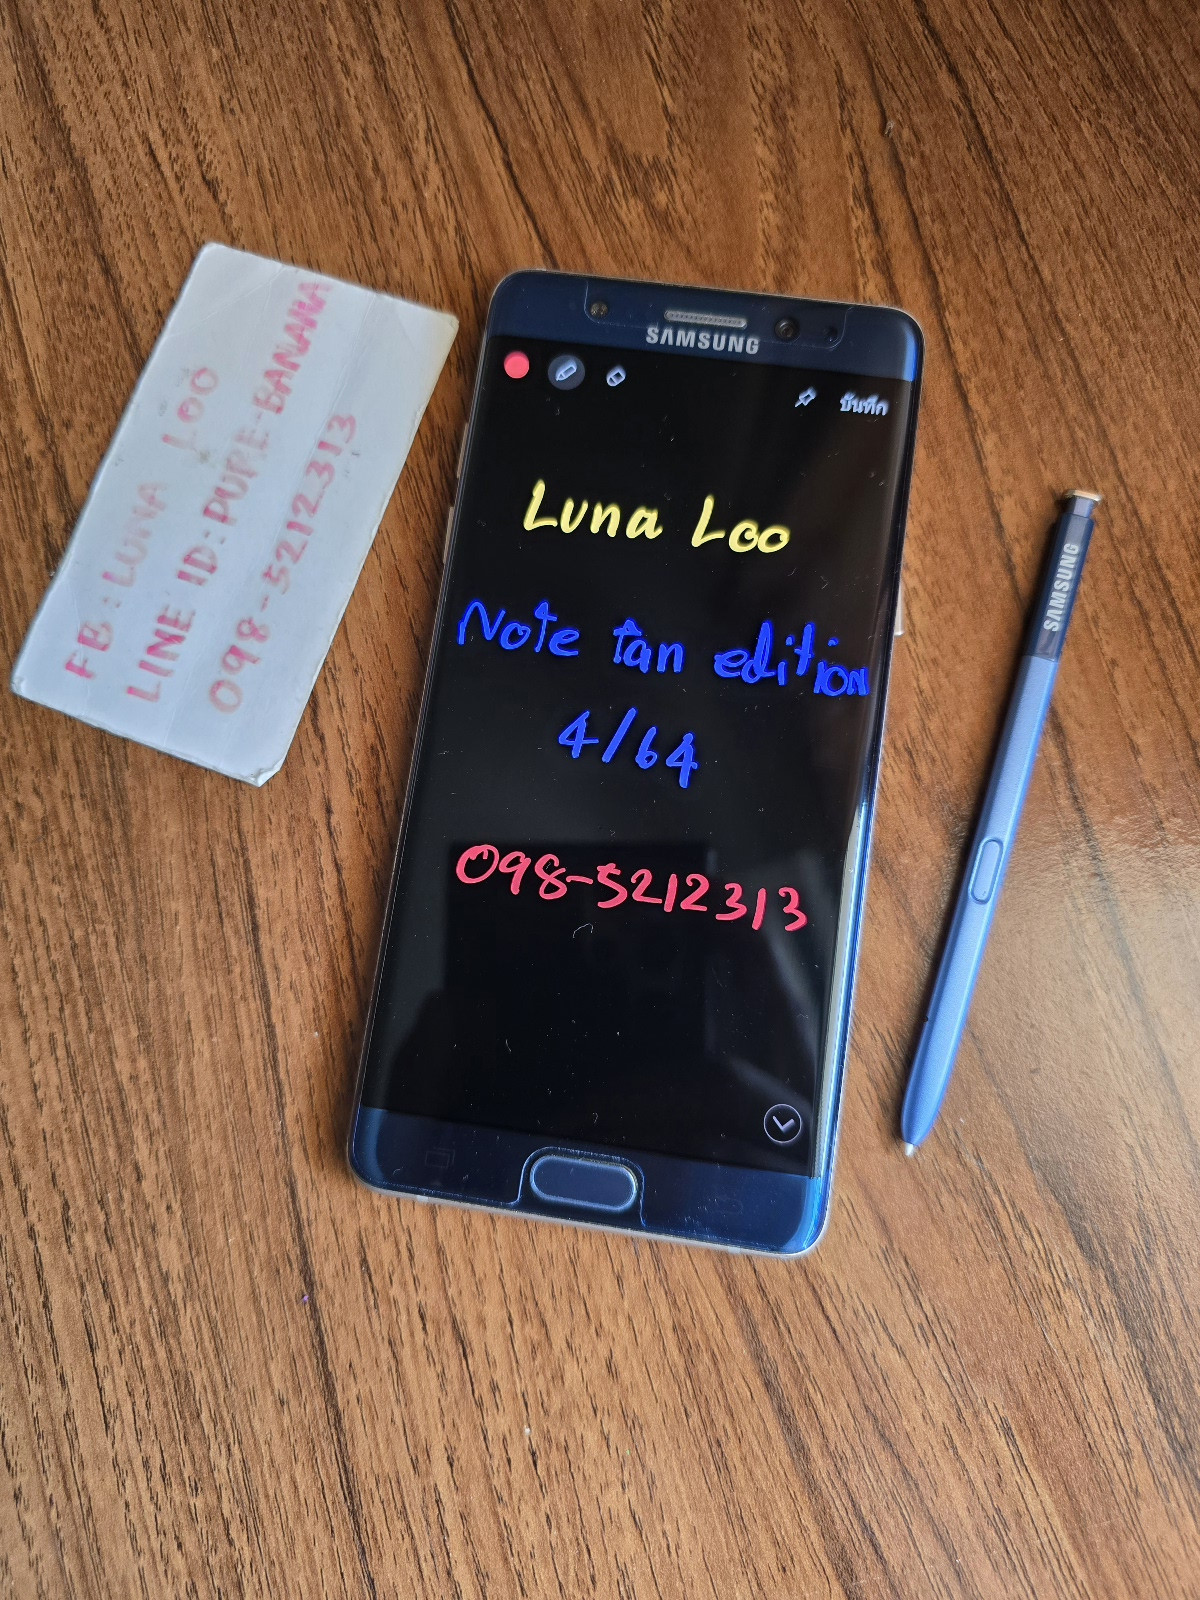 FB: LUNA LOO
LINE ID: PURE-BANANA
098-5212313
SAMSUNG
บันทึก
Luna Loo
Note fan edition
4/64
098-5212313
SAMSUNG